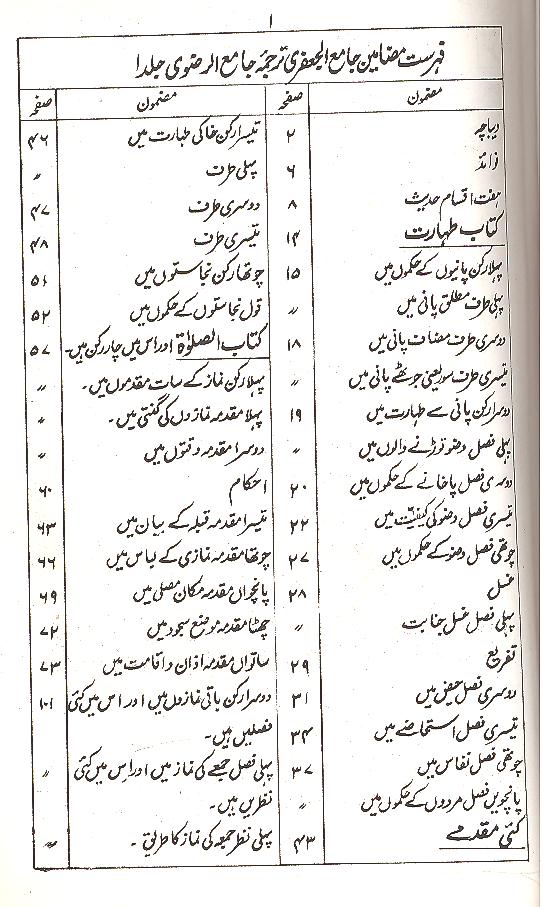 ۱
فہرست مضامین جامع الجعفری ترجمہ جامع الرضوی جلد۱
مضمون صفحہ
دیباچہ ۲
زائد ۶
ہفت اقسام حدیث ۸
کتاب طہارت ۱۴
پہلا رکن پانیوں کے حکموں میں ۱۵
پہلی طرف مطلق پانی میں 〃
دوسری طرف مضاف پانی میں ۱۸
تیسری طرف سور یعنی جوٹھے پانی میں 〃
دوسرا رکن پانی سے طہارت میں ۱۹
پہلی فصل وضو توڑنے والوں میں 〃
دوسری فصل پاخانے کے حکموں میں ۲۰
تیسری فصل وضو کی کیفیت میں ۲۲
چوتھی فصل وضو کے حکموں میں ۲۷
غسل ۲۸
پہلی فصل غسل جنابت 〃
تفریع ۲۹
دوسری فصل حیض میں ۳۱
تیسری فصل استحاضے میں ۳۴
چوتھی فصل نفاس میں ۳۷
پانچویں فصل مردوں کے حکموں میں 〃
کئی مقدمے ۴۳
مضمون صفحہ
تیسرا رکن خاکی طہارت میں ۴۶
پہلی طرف 〃
دوسری طرف ۴۷
تیسری طرف ۴۸
چوتھا رکن نجاستوں میں ۵۱
قول نجاستوں کے حکموں میں ۵۲
کتاب الصلوٰة اور اس میں چار رکن ہیں۔ ۵۷
پہلا رکن نماز کے سات مقدموں میں۔ 〃
پہلا مقدمہ نمازوں کی گنتی میں۔ 〃
دوسرا مقدمہ وقتوں میں 〃
احکام ۶۰
تیسرا مقدمہ قبلہ کے بیان میں ۶۳
چوتھا مقدمہ نمازی کے لباس میں ۶۶
پانچواں مقدمہ مکان مصلی میں ۶۹
چھٹا مقدمہ موضع سجود میں ۷۲
ساتواں مقدمہ اذان و اقامت میں ۷۳
دوسرا رکن باقی نمازوں میں اور اس میں کئی ۱۰۱
فصلیں ہیں۔
پہلی فصل جمعے کی نماز میں اور اس میں کئی 〃
نظریں ہیں۔
پہلی نظر جمعہ کی نماز کا طریق۔ 〃